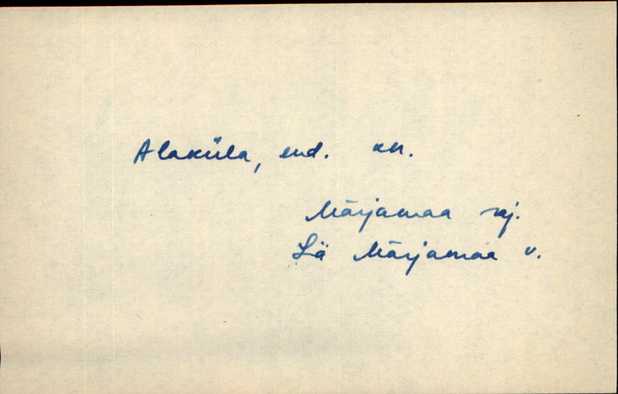 Alaküla, end. kn.
Märjamaa raj.
Lä Märjamaa v.